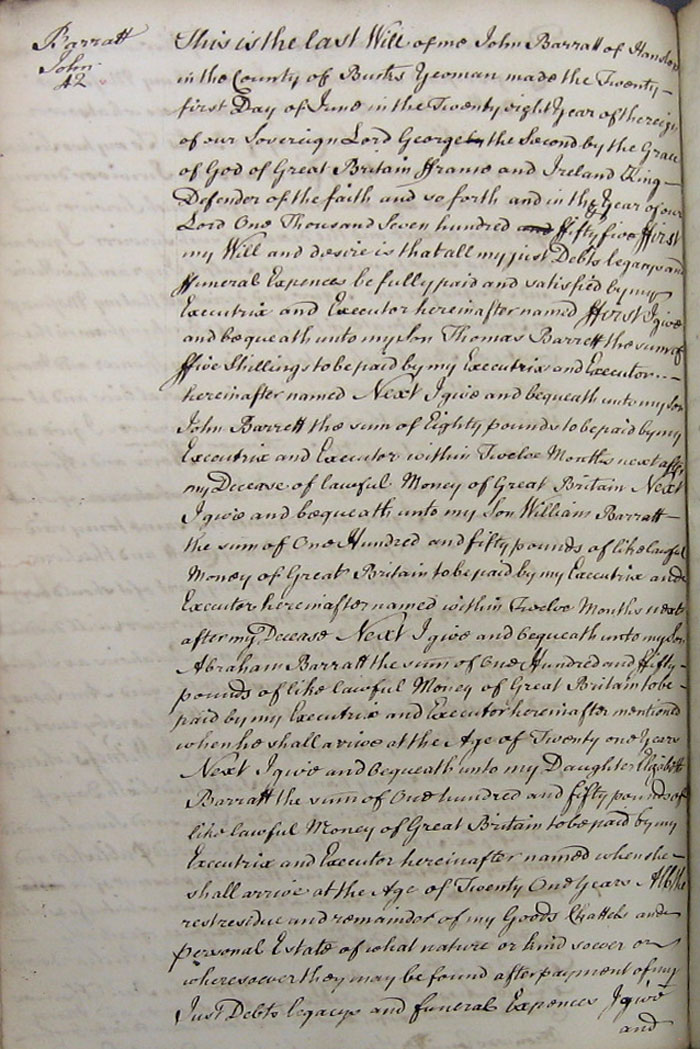 Barratt
John
42
This is the last Will of me John Barratt of Hanslop
in the County of Bucks Yeoman made the Twenty
first Day of June in the Twenty eight Year of the reign
of our Sovereign Lord George by the Second by the Grace
of God of Great Britain ffrance and Ireland King
Defender of the faith and so forth and in the Year of our
Lord One Thousand Seven hundred and fifty five ffirst
my Will and desire is that all my just Debts legacys and
ffuneral Expences be fully paid and satisfied by my
Executrix and Executor hereinafter named ffirst I give
and bequeath unto my Son Thomas Barrett the sum of
ffive Shillings to be paid by my Executrix and Executor
hereinafter named Next I give and bequeath unto my son
John Barrett the sum of Eighty pounds to be paid by my
Executrix and Executor within Twelve Months next after
my Decease of lawful Money of Great Britain Next
I give and bequeath unto my Son William Barratt
the sum of One Hundred and fifty pounds of like lawful
Money of Great Britain to be paid by my Executrix and
Executor hereinafter named within Twelve Months next
after my Decease Next I give and bequeath unto my Son
Abraham Barratt the sum of One Hundred and ffifty
pounds of like lawful Money of Great Britain to be
paid by my Executrix and Executor hereinafter mentioned
when he shall arrive at the Age of Twenty one Years
Next I give and bequeath unto my Daughter Elizabeth
Barratt the sum of One hundred and fifty pounds of
like lawful Money of Great Britain to be paid by my
Executrix and Executor hereinafter named when she
shall arrive at the Age of Twenty One Years All the
rest residue and remainder of my Goods Chattels and
personal Estate of what nature or kind soever or
wheresoever they may be found after payment of my
Just Debts legacys and funeral Expences I give
and